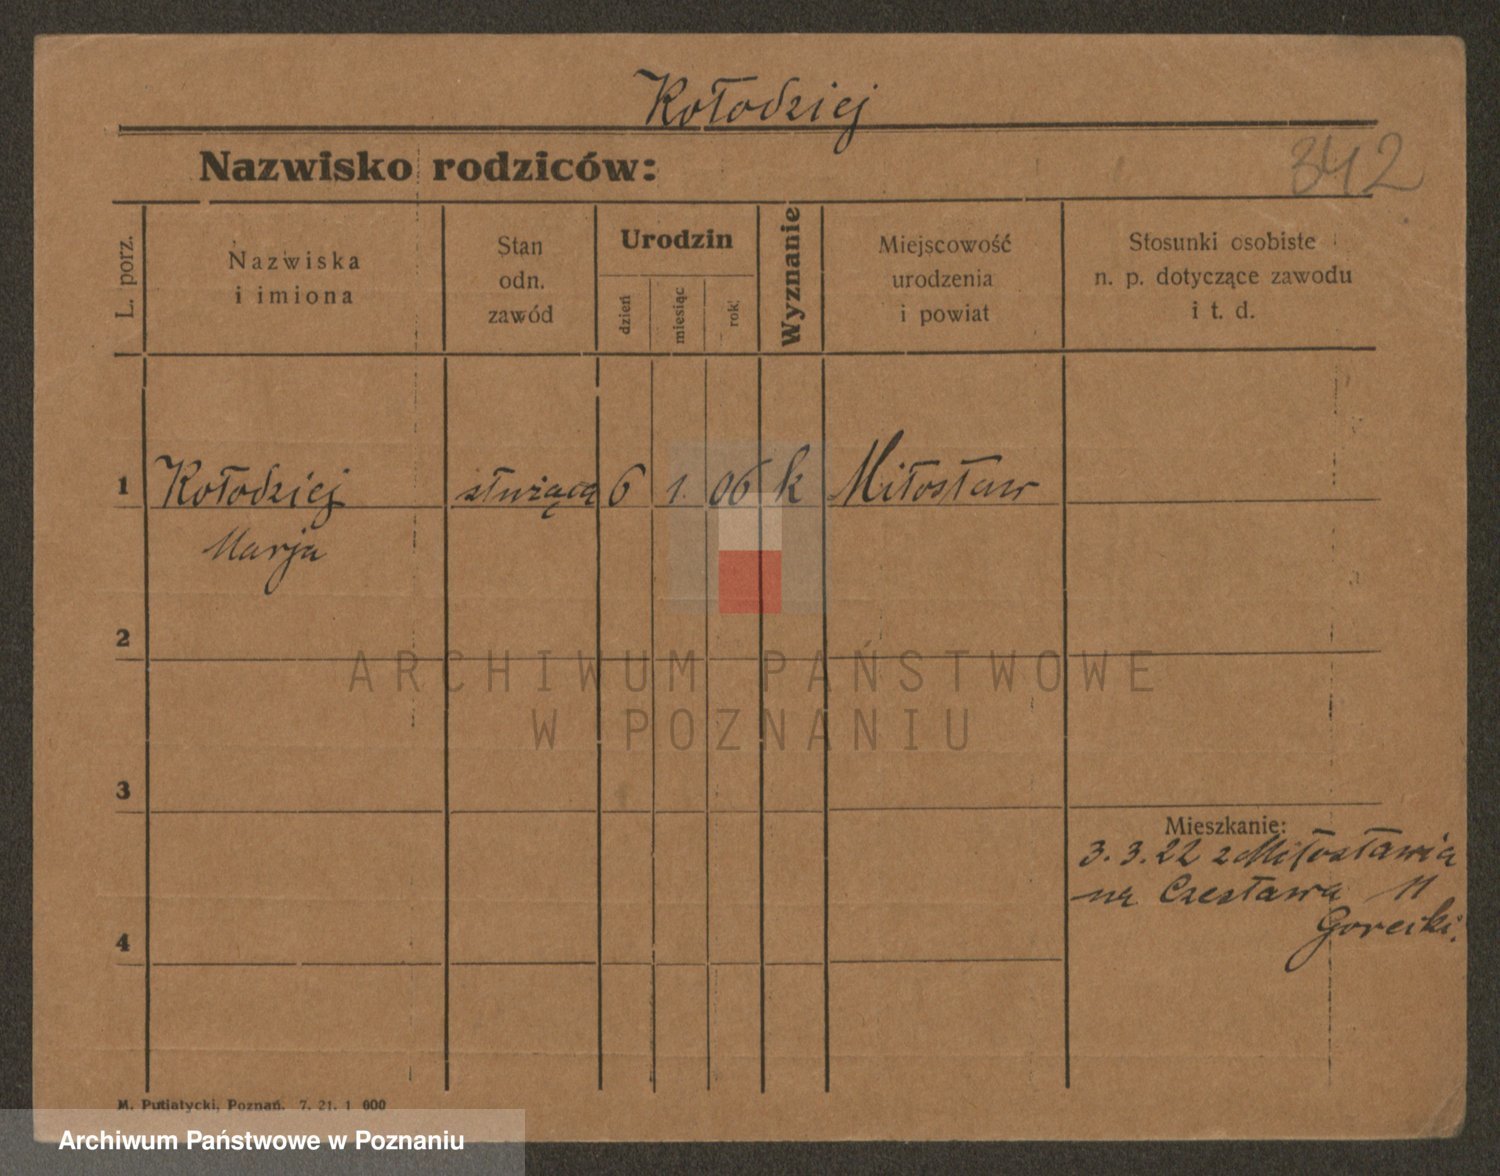 Kołodziej
Nazwisko rodziców:
342
L. porz.
Nazwiska
i imiona
Stan
odn.
zawód
Urodzin
dzień
miesiąc
rok
Wyznanie
Miejscowość
urodzenia
i powiat
Stosunki osobiste
n. p. dotyczące zawodu
i t. d.
1 Kołodziej służąca 6 1. 06 k Miłosław
Marja
2
ARCHIWUM PAŃSTWOWE
W POZNANIU
3
Mieszkanie:
3. 3. 22 z Miłosławia
na Czesława 11
Gorecki.
4
M. Putiatycki, Poznań. 7. 21. 1 000
Archiwum Państwowe w Poznaniu